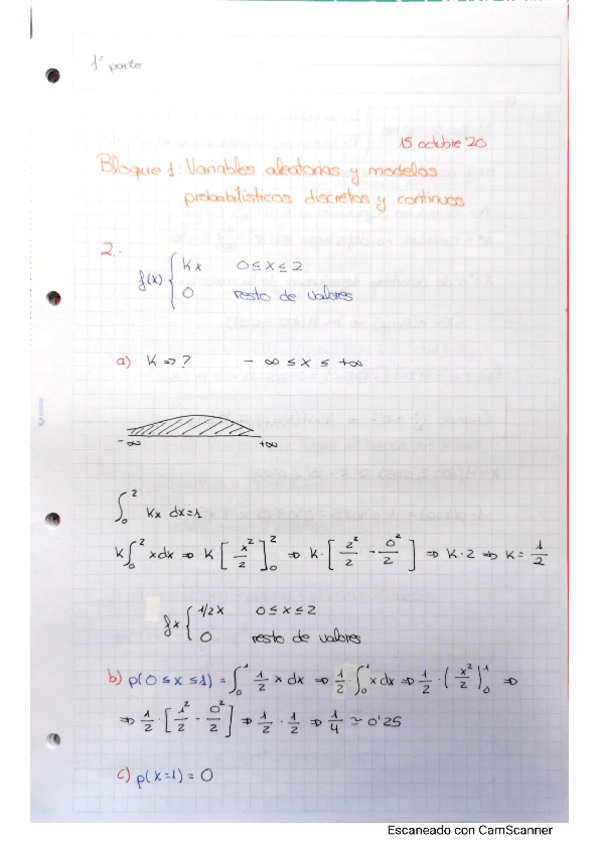 1ª parte
15 octubre '20
Bloque 1: Variables aleatorias y modelos
probabilísticos discretos y continuos
2.-
f(x) { Kx 0≤x≤2
0 resto de valores
a) K ⇒ ? - ∞ ≤ x ≤ +∞
-∞ +∞
∫₀² Kx dx = 1
K∫₀² x dx ⇒ K [x²/2]₀² ⇒ K·[2²/2 - 0²/2] ⇒ K·2 ⇒ K = 1/2
fx { 1/2 x 0≤x≤2
0 resto de valores
b) p(0≤x≤1) = ∫₀¹ 1/2 x dx ⇒ 1/2 · ∫₀¹ x dx ⇒ 1/2 · (x²/2)₀¹ ⇒
⇒ 1/2 · [1²/2 - 0²/2] ⇒ 1/2 · 1/2 ⇒ 1/4 ≃ 0'25
c) p(x=1) = 0
Escaneado con CamScanner